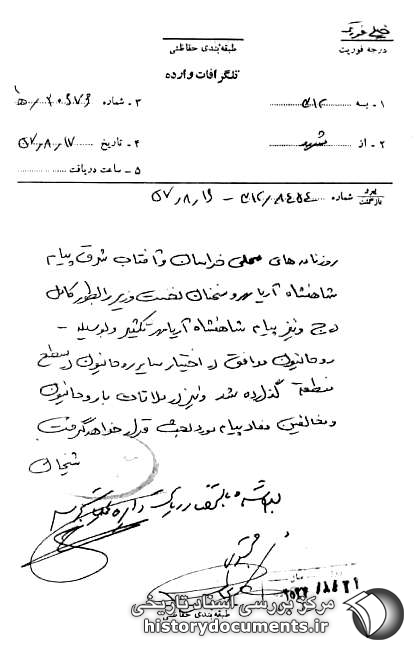 خیلی فوری
درجه فوریت
طبقه‌بندی حفاظتی
تلگرافات وارده
۱ - به ۳۱۲
۳ - شماره
۲ - از مشهد
۴ - تاریخ ۵۷٫۸٫۱۷
۵ - ساعت دریافت
شماره ۳۱۲٫۸۴۵۴ - ۵۷٫۸٫۱۶
روزنامه های محلی خراسان و آفتاب شرق پیام
شاهنشاه آریامهر و سخنان نخست وزیر را بطور کامل
درج و نیز پیام شاهنشاه آریامهر تکثیر و بوسیله -
روحانیون موافق در اختیار سایر روحانیون در سطح
منطقه گذارده شد و نیز در ملاقات با روحانیون
و مخالفین مفاد پیام مورد بحث قرار خواهد گرفت
شیخان
مرکز بررسی اسناد تاریخی
historydocuments.ir
طبقه‌بندی حفاظتی